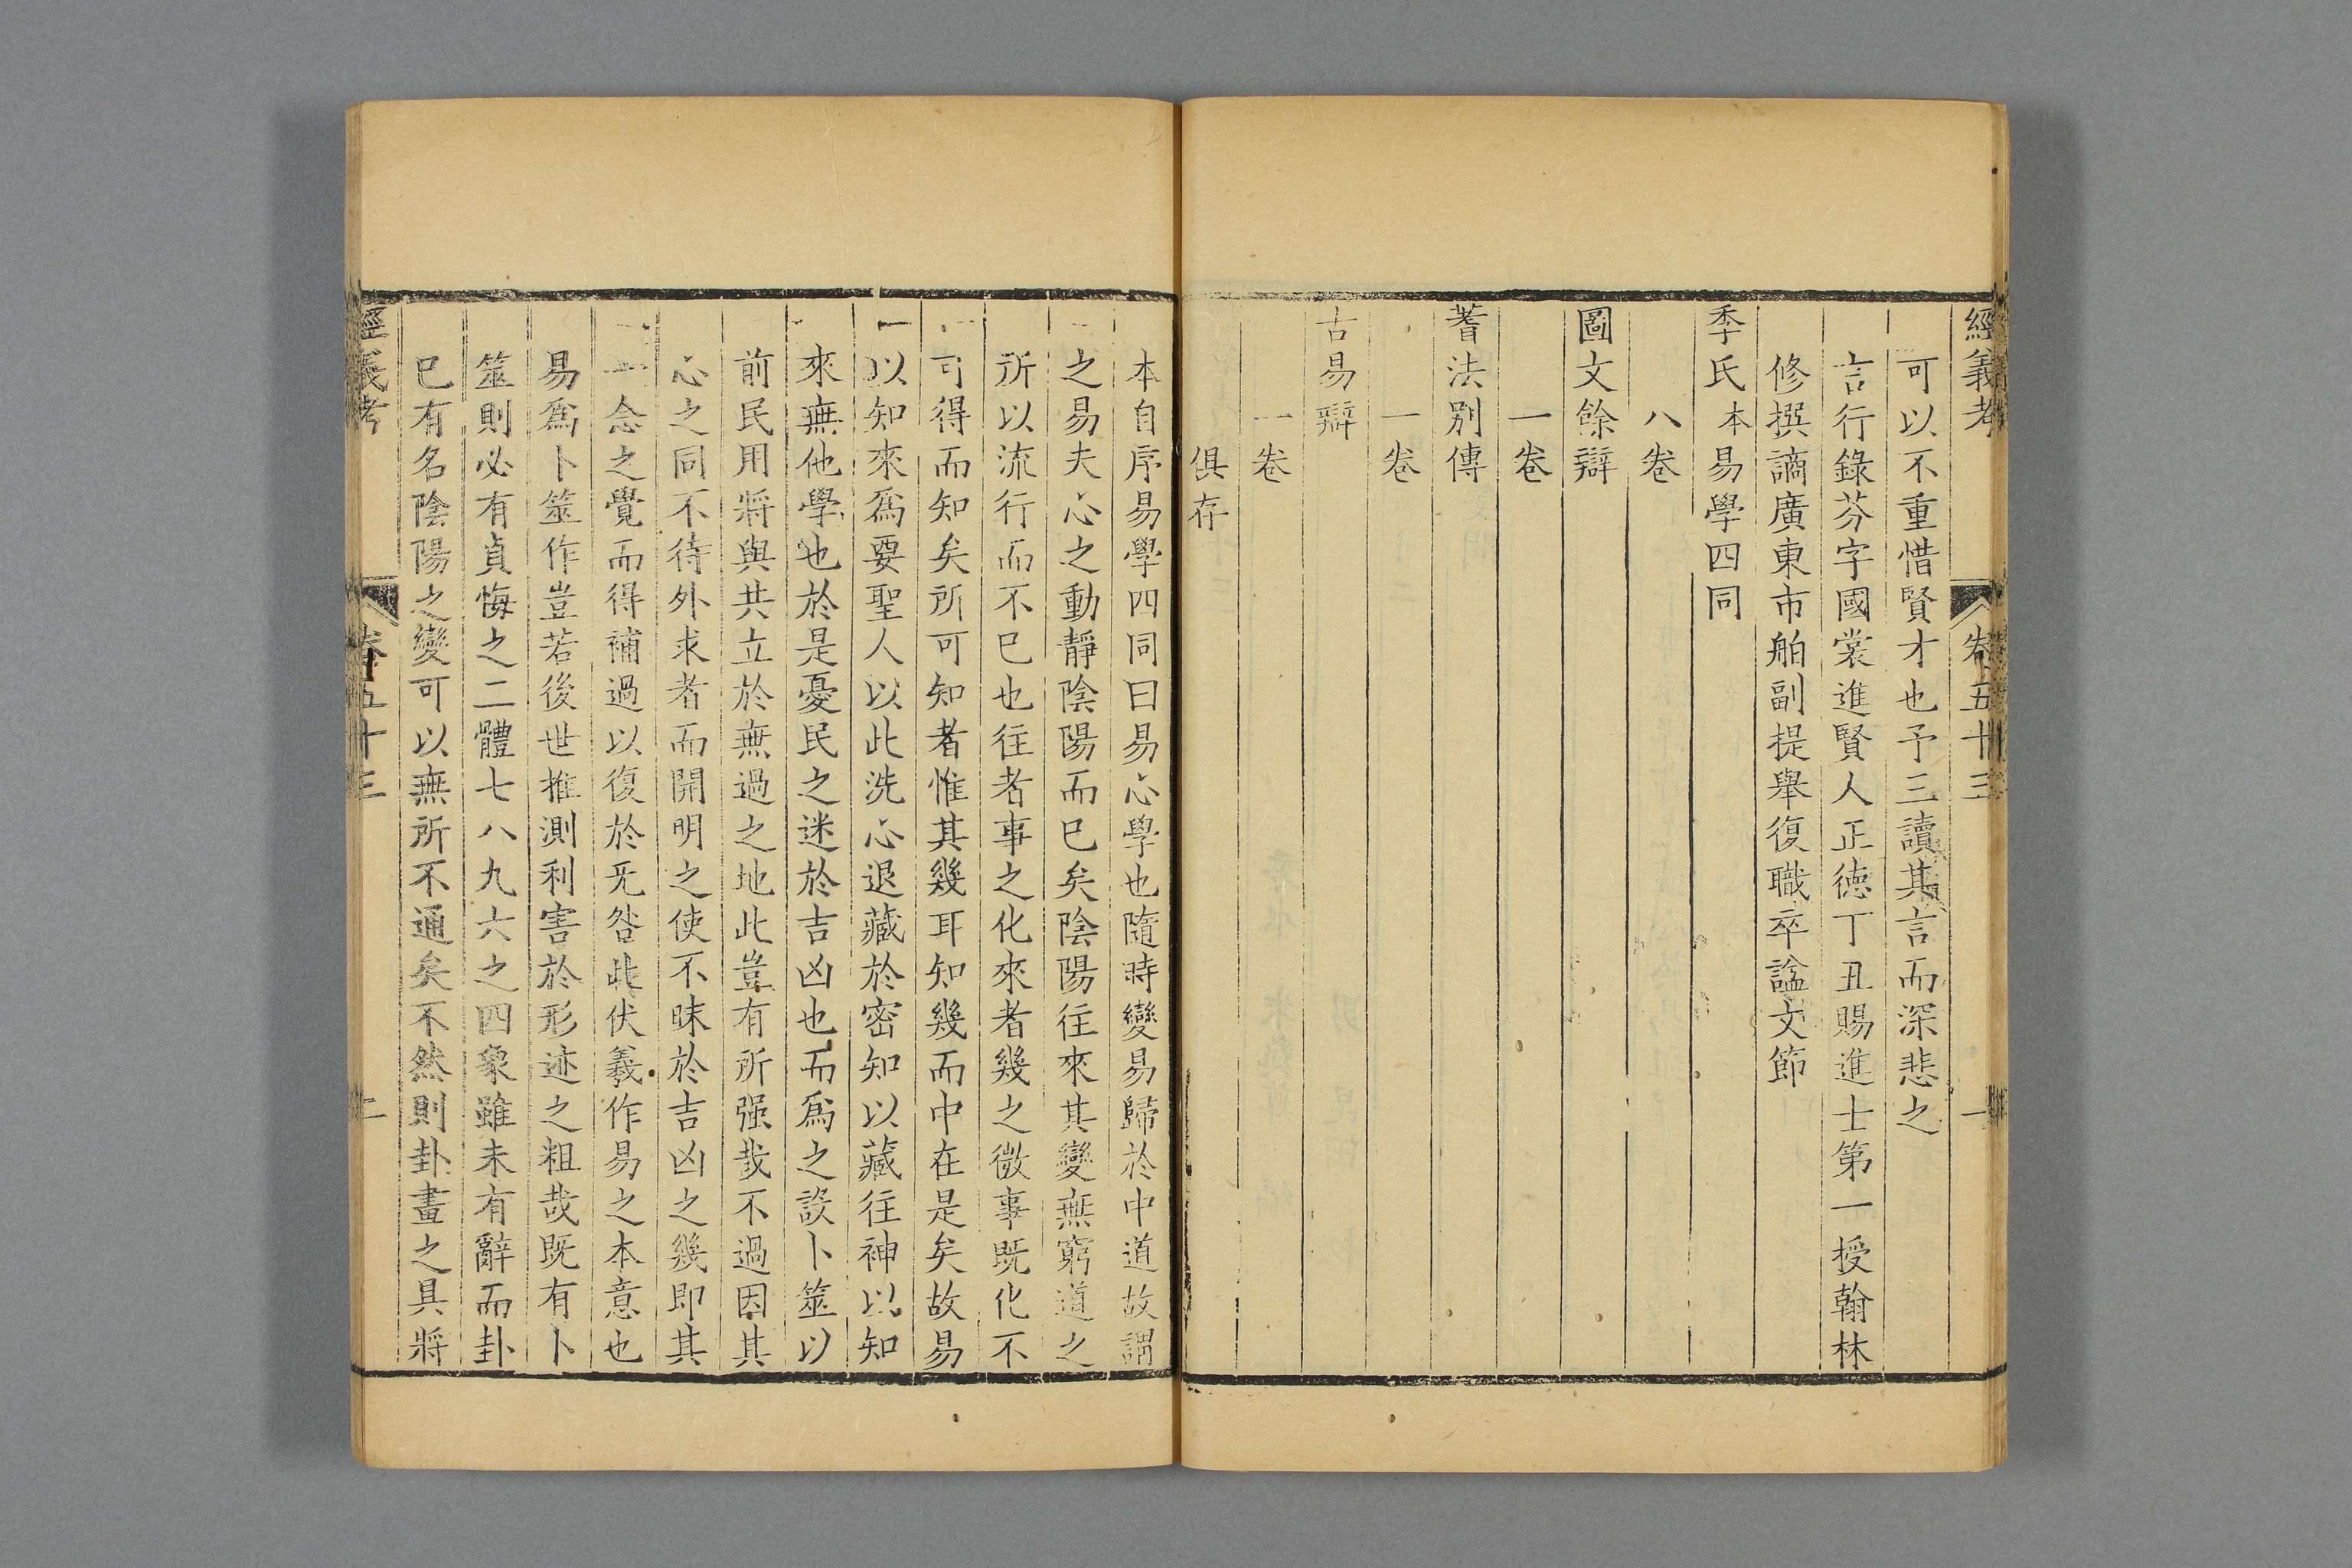 經義考 卷五十三 一
可以不重惜賢才也予三讀其言而深悲之
言行錄芬字國裳進賢人正德丁丑賜進士第一授翰林
修撰謫廣東市舶副提舉復職卒諡文節
季氏本易學四同
八卷
圖文餘辯
一卷
蓍法別傳
一卷
古易辯
一卷
俱存
本自序易學四同曰易心學也隨時變易歸於中道故謂
之易夫心之動靜陰陽而已矣陰陽往來其變無窮道之
所以流行而不已也往者事之化來者幾之微事既化不
可得而知矣所可知者惟其幾耳知幾而中在是矣故易
以知來爲要聖人以此洗心退藏於密知以藏往神以知
來無他學也於是憂民之迷於吉凶也而爲之設卜筮以
前民用將與共立於無過之地此豈有所强哉不過因其
心之同不待外求者而開明之使不昧於吉凶之幾即其
一念之覺而得補過以復於无咎此伏羲作易之本意也
易爲卜筮作豈若後世推測利害於形迹之粗哉既有卜
筮則必有貞悔之二體七八九六之四象雖未有辭而卦
已有名陰陽之變可以無所不通矣不然則卦畫之具將
經義考 卷五十三